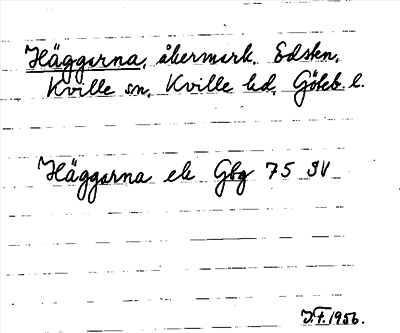 Häggarna, åkermark, Edsten,
Kville sn, Kville hd, Göteb. l.
Häggarna ek Gbg 75 SV
J.F. 1956.